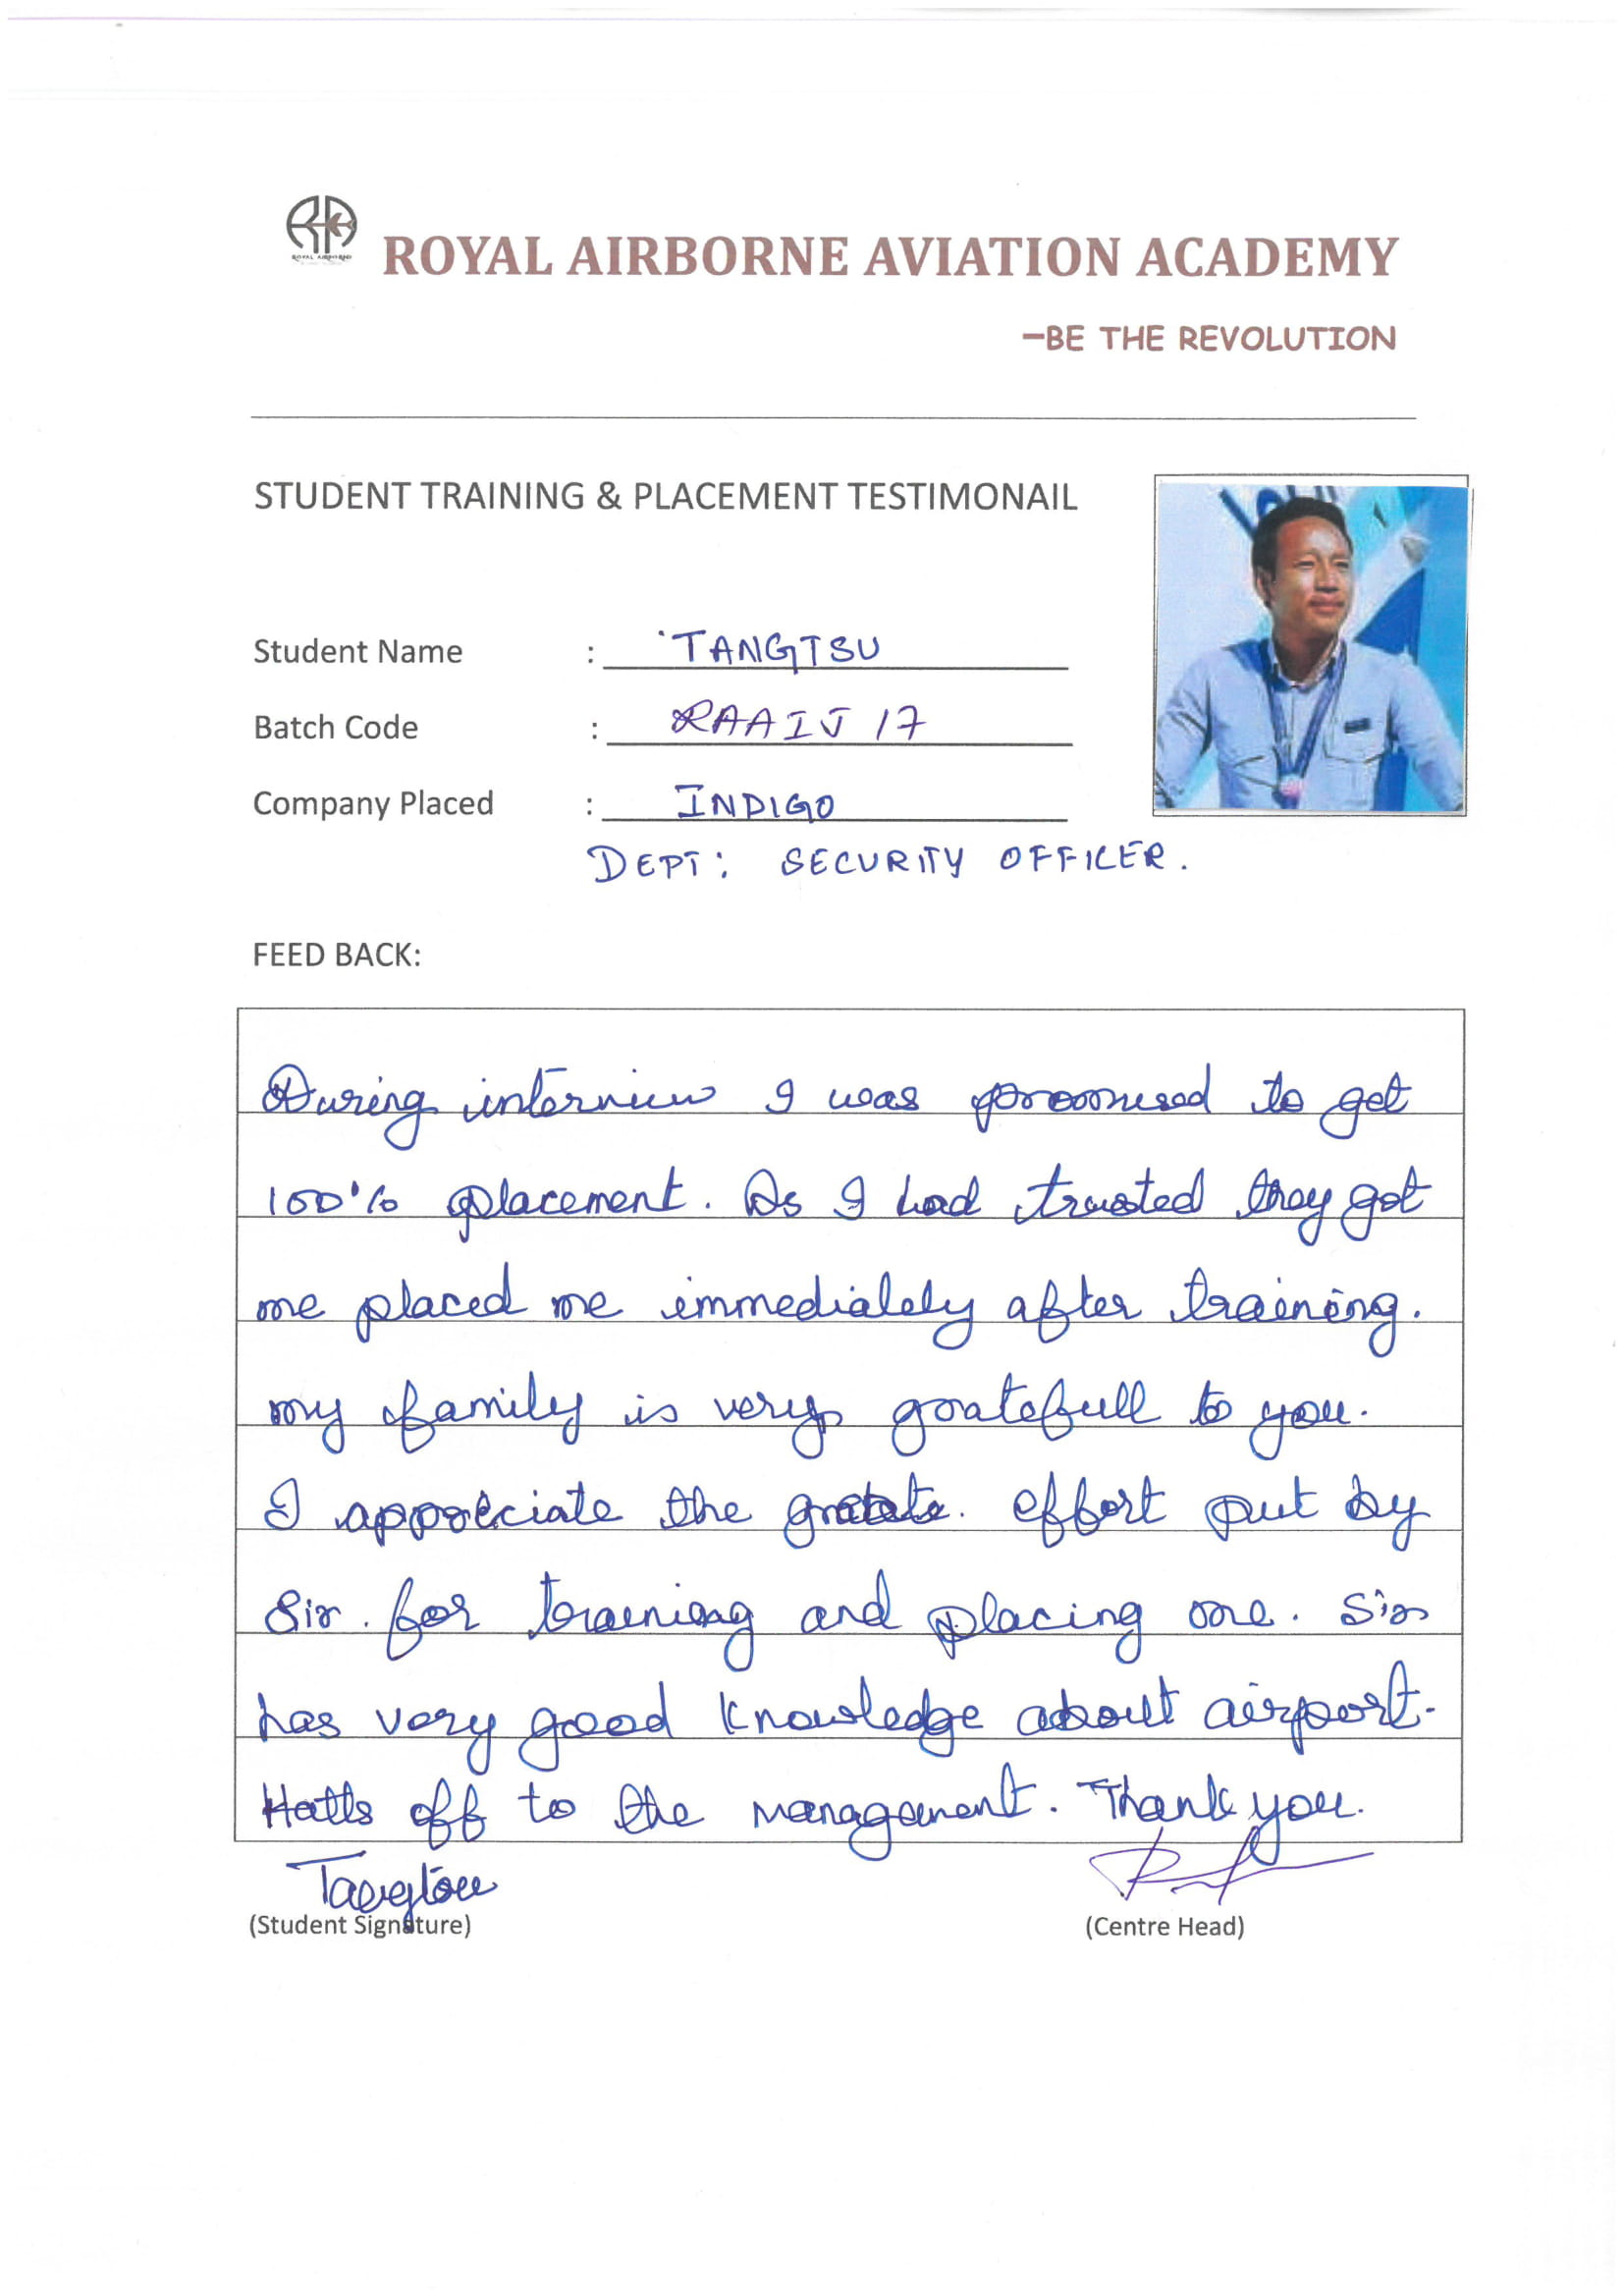 ROYAL AIRBORNE
ROYAL AIRBORNE AVIATION ACADEMY
–BE THE REVOLUTION
STUDENT TRAINING & PLACEMENT TESTIMONAIL
Student Name : TANGTSU
Batch Code : RAAIJ 17
Company Placed : INDIGO
DEPT: SECURITY OFFICER.
FEED BACK:
During interview I was promised to get
100% placement. As I had trusted they got
me placed me immediately after training.
my family is very gratefull to you.
I appreciate the effort put by
Sir. for training and placing me. Sir
has very good knowledge about airport.
Hatts off to the management. Thank you.
Tangtsu
(Student Signature) (Centre Head)